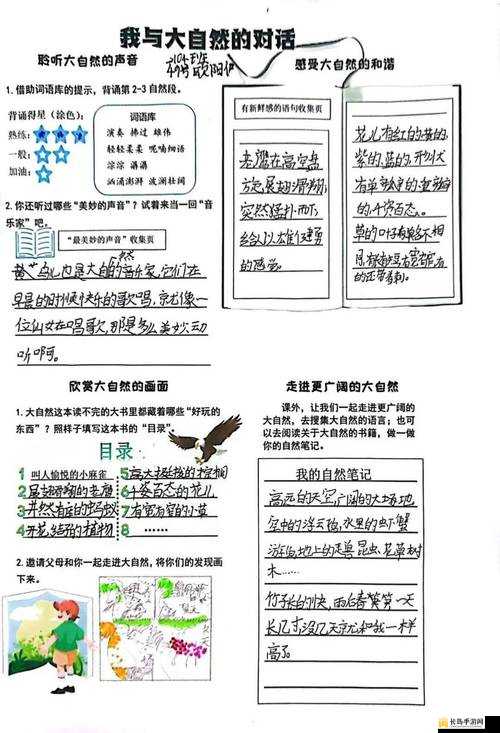 我与大自然的对话
聆听大自然的声音
1. 借助词语库的提示，背诵第 2-3 自然段。
背诵得星（涂色）：
熟练：
一般：
加油：
词语库
演奏 拂过 雄伟
轻轻柔柔 呢喃细语
淙淙 潺潺
汹涌澎湃 波澜壮阔
2. 你还听过哪些“美妙的声音”？试着来当一回“音
乐家”吧。
“最美妙的声音”收集页
黄鸟儿也是大自然的音乐家，它们在
早晨的时候快乐的歌唱，京尤像一
位仙女在唱歌，那是多么美妙云力
听啊。
感受大自然的和谐
有新鲜感的语句收集页
老鹰在高空盘
旋，展翅滑翔，
突然猛扑而下，
给人以雄健勇
的感觉。
花儿有红的、黄的、
紫的、蓝的、形状
的，千姿百态。
草的叶子有
的还带着刺。
欣赏大自然的画面
1. 大自然这本读不完的大书里都藏着哪些“好玩的
东西”？照样子填写这本书的“目录”。
目录
1 叫人愉悦的小麻雀
2 展翅翱翔的老鹰
3 井然有序的蚂蚁
4 开花结果的植物
5 高大挺拔的梧桐
6 千姿百态的花儿
7 有宽有窄的小草
8 ……
2. 邀请父母和你一起走进大自然，将你们的发现画
下来。
走进更广阔的大自然
课外，让我们一起走进更广阔的
大自然，去搜集大自然的语言；也可
以去阅读关于大自然的书籍，做一做
你的自然笔记。
我的自然笔记
高远的天空，广阔的大地，
空中的浮云，水里的虾蟹
游鱼，地上的走兽昆虫、花草树
木……
竹子长的快，雨后春笋第一天
长几寸，没几天京尤和我一样
高了。
长岛手游网